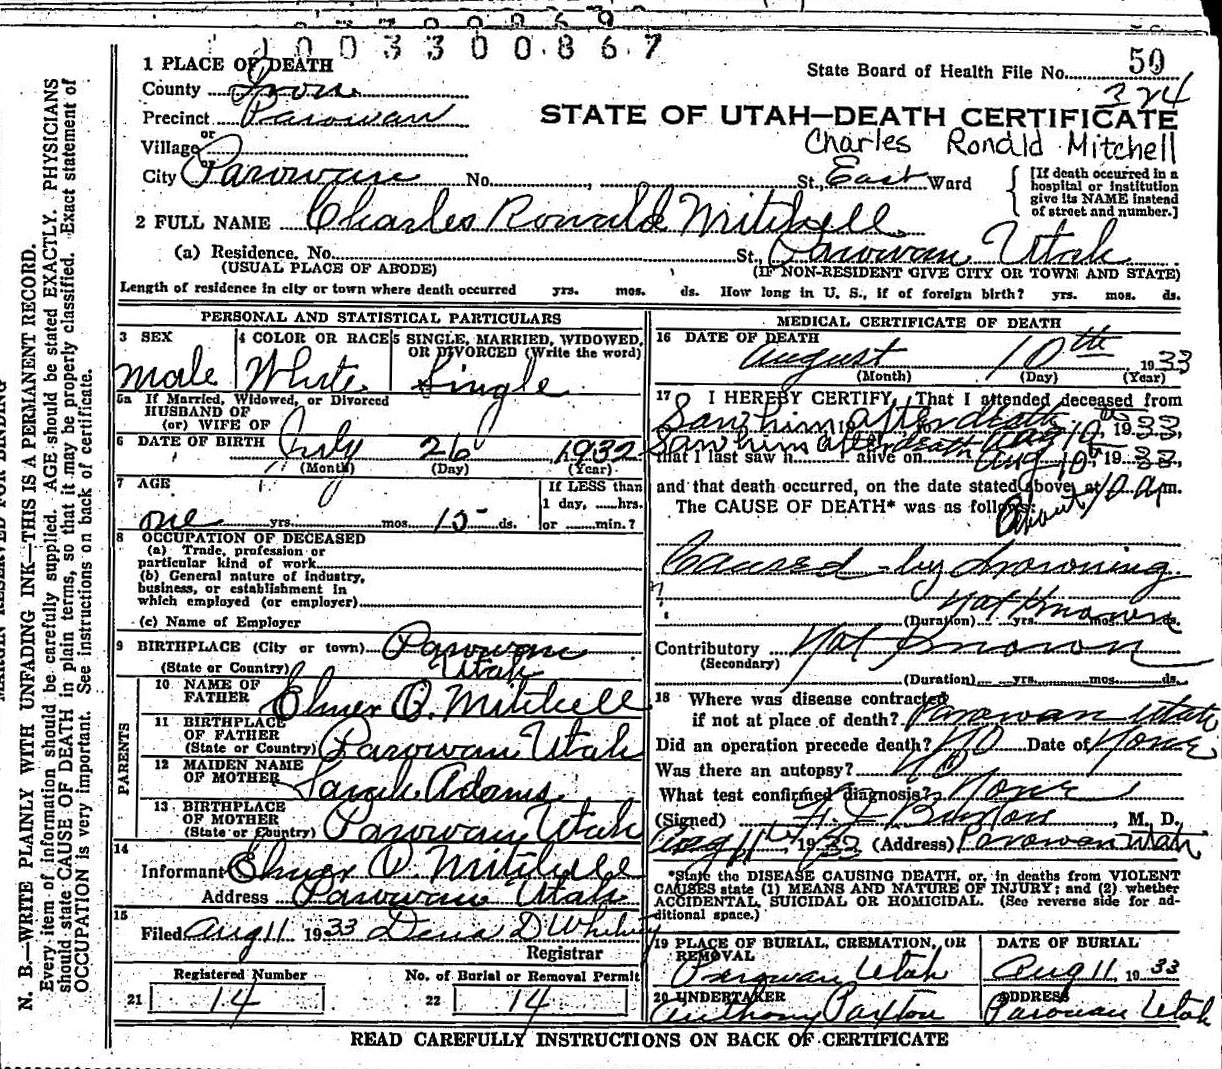 1 0 0 3 3 0 0 8 6 7
1 PLACE OF DEATH
State Board of Health File No. 50
324
County Iron
Precinct Parowan
STATE OF UTAH—DEATH CERTIFICATE
or
Village
Charles Ronald Mitchell
or
City Parowan No. , St., East Ward
[If death occurred in a hospital or institution give its NAME instead of street and number.]
2 FULL NAME Charles Ronald Mitchell
(a) Residence. No. St., Parowan Utah
(USUAL PLACE OF ABODE) (IF NON-RESIDENT GIVE CITY OR TOWN AND STATE)
Length of residence in city or town where death occurred yrs. mos. ds. How long in U. S., if of foreign birth? yrs. mos. ds.
PERSONAL AND STATISTICAL PARTICULARS
3 SEX
Male
4 COLOR OR RACE
White
5 SINGLE, MARRIED, WIDOWED,
OR DIVORCED (Write the word)
Single
5a If Married, Widowed, or Divorced
HUSBAND OF
(or) WIFE OF
6 DATE OF BIRTH July 26 1932
(Month) (Day) (Year)
7 AGE
one yrs. mos. 15 ds.
If LESS than
1 day, hrs.
or min.?
8 OCCUPATION OF DECEASED
(a) Trade, profession or
particular kind of work
(b) General nature of industry,
business, or establishment in
which employed (or employer)
(c) Name of Employer
9 BIRTHPLACE (City or town) Parowan
(State or Country) Utah
PARENTS
10 NAME OF
FATHER Elmer O. Mitchell
11 BIRTHPLACE
OF FATHER
(State or Country) Parowan Utah
12 MAIDEN NAME
OF MOTHER Sarah Adams
13 BIRTHPLACE
OF MOTHER
(State or Country) Parowan Utah
14
Informant Elmer O. Mitchell
Address Parowan Utah
15
Filed Aug 11 1933
Registrar
Registered Number
21 14
No. of Burial or Removal Permit
22 14
MEDICAL CERTIFICATE OF DEATH
16 DATE OF DEATH
August 10th 1933
(Month) (Day) (Year)
17 I HEREBY CERTIFY, That I attended deceased from
Saw him after death Aug 10th, 1933,
that I last saw h alive on Aug 10th, 1933,
and that death occurred, on the date stated above, at 10 a.m.
The CAUSE OF DEATH* was as follows:
About
Caused by Drowning
Not Known
(Duration) yrs. mos. ds.
Contributory Not Known
(Secondary)
(Duration) yrs. mos. ds.
18 Where was disease contracted
if not at place of death? Parowan Utah
Did an operation precede death? No Date of None
Was there an autopsy? No
What test confirmed diagnosis? None
(Signed) , M. D.
Aug 11th, 1933 (Address) Parowan Utah
*State the DISEASE CAUSING DEATH, or, in deaths from VIOLENT
CAUSES state (1) MEANS AND NATURE OF INJURY; and (2) whether
ACCIDENTAL, SUICIDAL OR HOMICIDAL. (See reverse side for ad-
ditional space.)
19 PLACE OF BURIAL, CREMATION, OR
REMOVAL
Parowan Utah
DATE OF BURIAL
Aug 11 1933
20 UNDERTAKER
Anthony Paxton
ADDRESS
Parowan Utah
READ CAREFULLY INSTRUCTIONS ON BACK OF CERTIFICATE
MARGIN RESERVED FOR BINDING
N. B.—WRITE PLAINLY WITH UNFADING INK—THIS IS A PERMANENT RECORD.
Every item of information should be carefully supplied. AGE should be stated EXACTLY. PHYSICIANS
should state CAUSE OF DEATH in plain terms, so that it may be properly classified. Exact statement of
OCCUPATION is very important. See instructions on back of certificate.